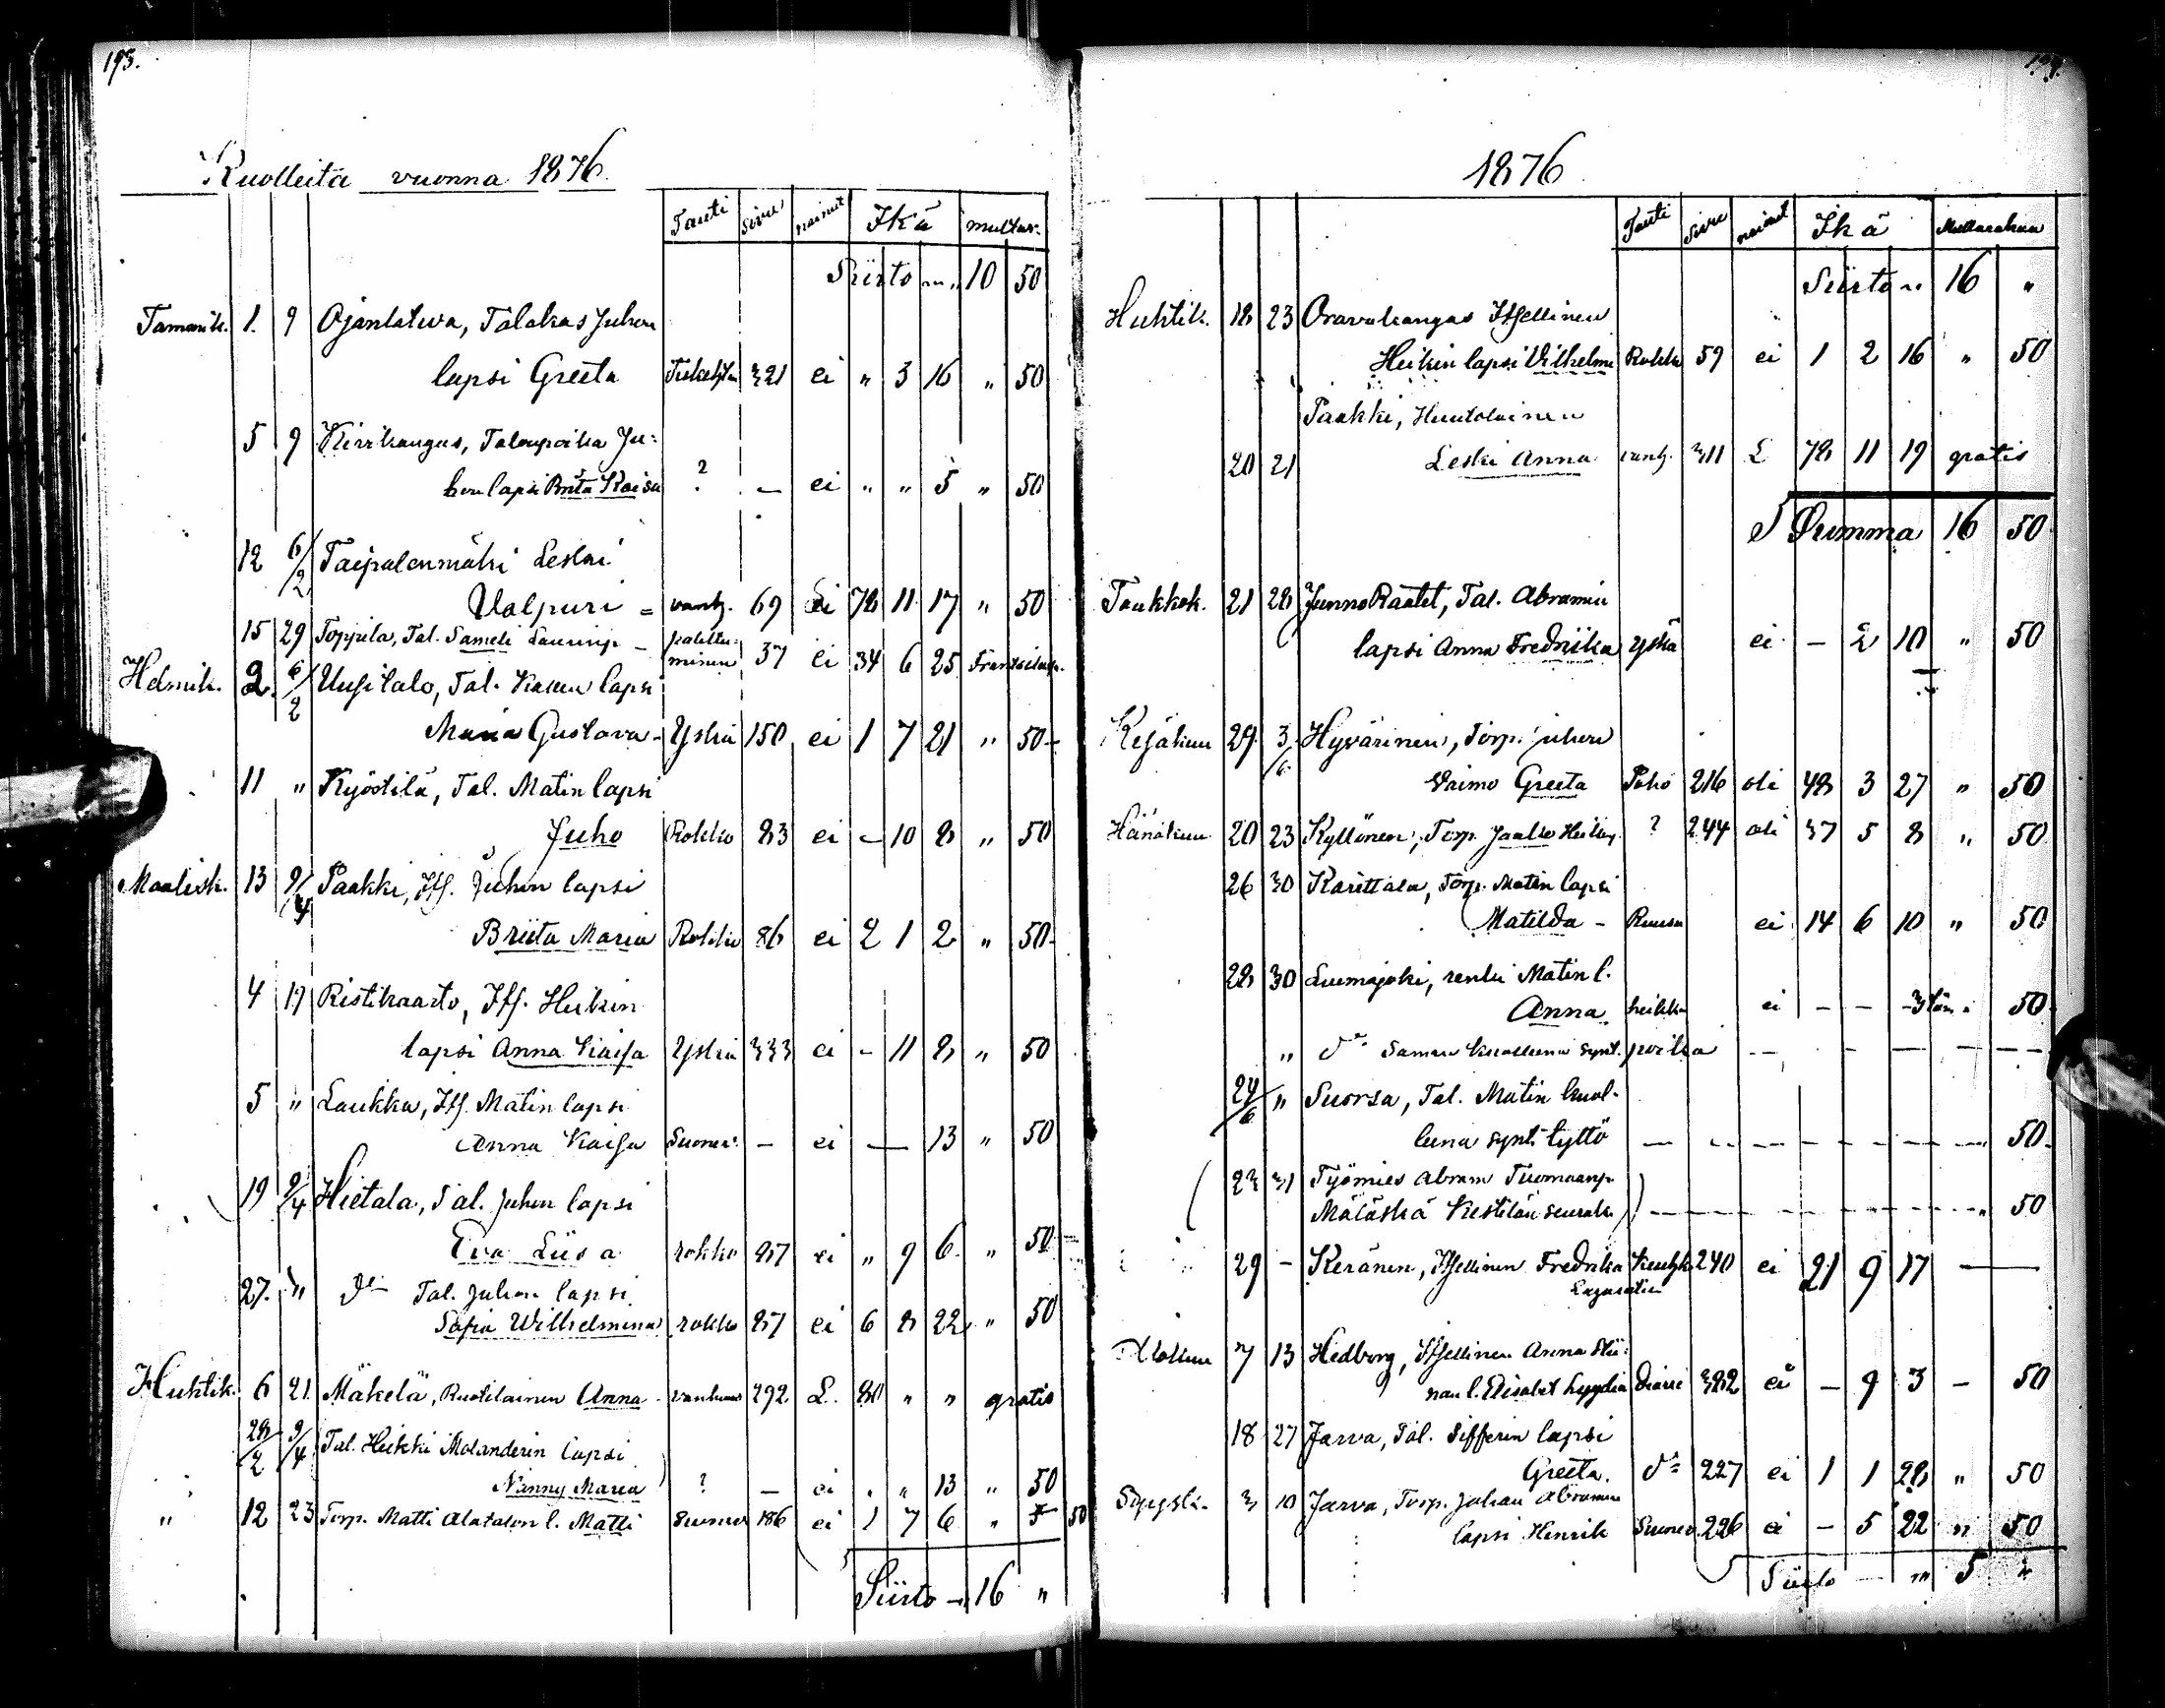 193.
Kuolleita vuonna 1876.
Tauti Sivu nainut Ikä multar.
Siirto " 10 50
Tammik. 1. 9 Ojanlatva, Talokas Juhon
lapsi Greeta 321 ei " 3 16 " 50
5 9 Kirrikangas, Talonpoika Ju:
hon lapsi Brita Kaisa ? — ei " " 5 " 50
12 6/2 Taipalenmäki Leski
Valpuri = vanh. 69 ei 78 11 17 " 50
15 29 Toppila, Tal. Sameli Laurinp. — halvttu:
minen 37 ei 34 6 25 Frantsilass.
Helmik. 2. 6/2 Uusitalo, Tal. lapsi
Maria Gustava - Yskä 150 ei 1 7 21 " 50 -
11 " Kyöstilä, Tal. Matin lapsi
Juho Rokko 83 ei - 10 8 " 50
Maalisk. 13 9/4 Paakki, Its. Juhon lapsi
Briita Maria Rokko 86 ei 2 1 2 " 50 -
4 19 Ristikaarto, Its. Heikin
lapsi Anna Kaisa Yskä 333 ei - 11 8 " 50
5 " Laukka, Its. Matin lapsi
Anna Kaisa Suoner. — ei — 13 " 50
19 9/4 Hietala, Tal. Juhon lapsi
Eva Liisa rokko 87 ei " 9 6 " 50
27. " Do Tal. Juhon lapsi
Sofia Wilhelmina rokko 87 ei 6 8 22 " 50
Huhtik. 6 21. Mäkelä, Ruotilainen Anna - vanhuus 292 L. 80 " " gratis
28/2 9/4 Tal. Heikki Molanderin lapsi
Nanny Maria ? — ei " " 13 " 50
" 12 23 Torp. Matti Alatalon l. Matti Suoner 186 ei 1 7 6 " 50
Siirto — 16 "
1876
Tauti Sivu nainut Ikä Multarahaa
Siirto " 16 "
Huhtik. 18 23 Oravakangas Itsellinen
Heikin lapsi Vilhelmi Rokko 59 ei 1 2 16 " 50
Paakki, Huutolainen
20 21 Leski Anna vanh. 311 L 78 11 19 gratis
Summa 16 50
Toukkok. 21 28 Junno Räätet, Tal. Abramin
lapsi Anna Fredriika yskä ei - 2 10 " 50
Kesäkuu 29 3/6 Hyvärinen, Torp. Juhon
Vaimo Greeta 216 oli 48 3 27 " 50
Hänäkuu 20 23 Kyllönen, Torp. Jaakko Heikinp. ? 244 oli 37 5 8 " 50
26 30 Karittala, Torp. Matin lapsi
Matilda - Ruusu ei 14 6 10 " 50
28 30 Lumajoki, renki Matin l.
Anna heikko ei - - 50
" Do Saman kuolleena synt. poika — - — — —
24/6 " Suorsa, Tal. Matin kuol-
lena synt. tyttö — — — — — — 50
23 31 Työmies Abram Tuomaanp.
Määtä Kestilän seurak. — — — 50
29 - Keränen, Itsellinen Fredrika Keuhk 240 ei 21 9 17 —
Elokuu 7 13 Hedborg, Itsellinen Anna Stii:
nan l. Elisabet Lyydia Diarri 382 ei - 9 3 - 50
18 27 Jarva, Tal. Sifferin lapsi
Greeta. Do 227 ei 1 1 28 " 50
Syysk. 3 10 Jarva, Torp. Johan Abramin
lapsi Henrik Suoner. 226 ei - 5 22 " 50
Siirto — " 5 "